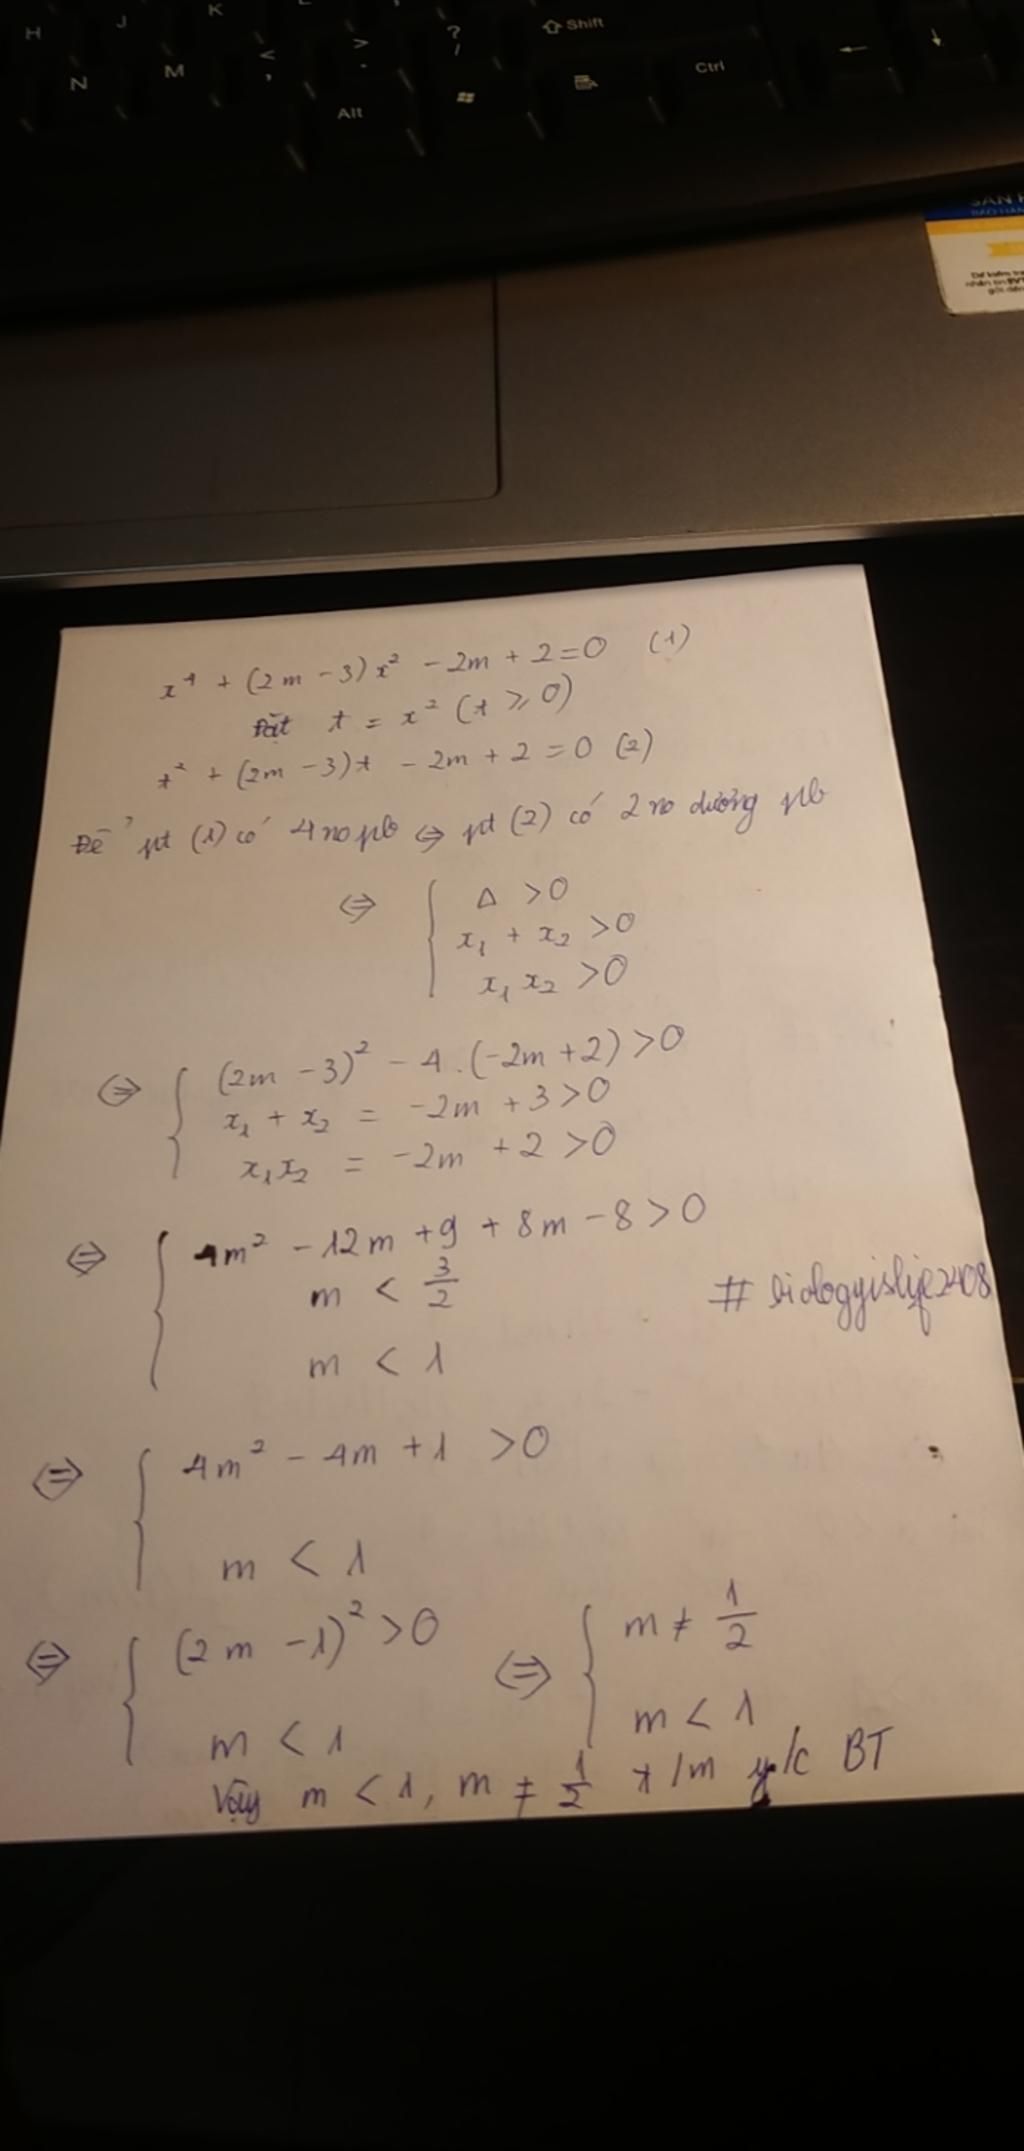 H J K L
N M < , > . ? / ⇧ Shift
Alt Ctrl ← ↓
SAN
BAO HAN
x⁴ + (2m - 3)x² - 2m + 2 = 0 (1)
Đặt t = x² (t ≥ 0)
t² + (2m - 3)t - 2m + 2 = 0 (2)
Để pt (1) có 4 no pb ⇔ pt (2) có 2 no dương pb
⇔ { Δ > 0
x₁ + x₂ > 0
x₁ x₂ > 0
⇔ { (2m - 3)² - 4.(-2m + 2) > 0
x₁ + x₂ = -2m + 3 > 0
x₁x₂ = -2m + 2 > 0
⇔ { 4m² - 12m + 9 + 8m - 8 > 0
m < 3/2
# biologyislife2408
m < 1
⇔ { 4m² - 4m + 1 > 0
m < 1
⇔ { (2m - 1)² > 0 ⇔ { m ≠ 1/2
m < 1 m < 1
Vậy m < 1, m ≠ 1/2 t/m y/c BT